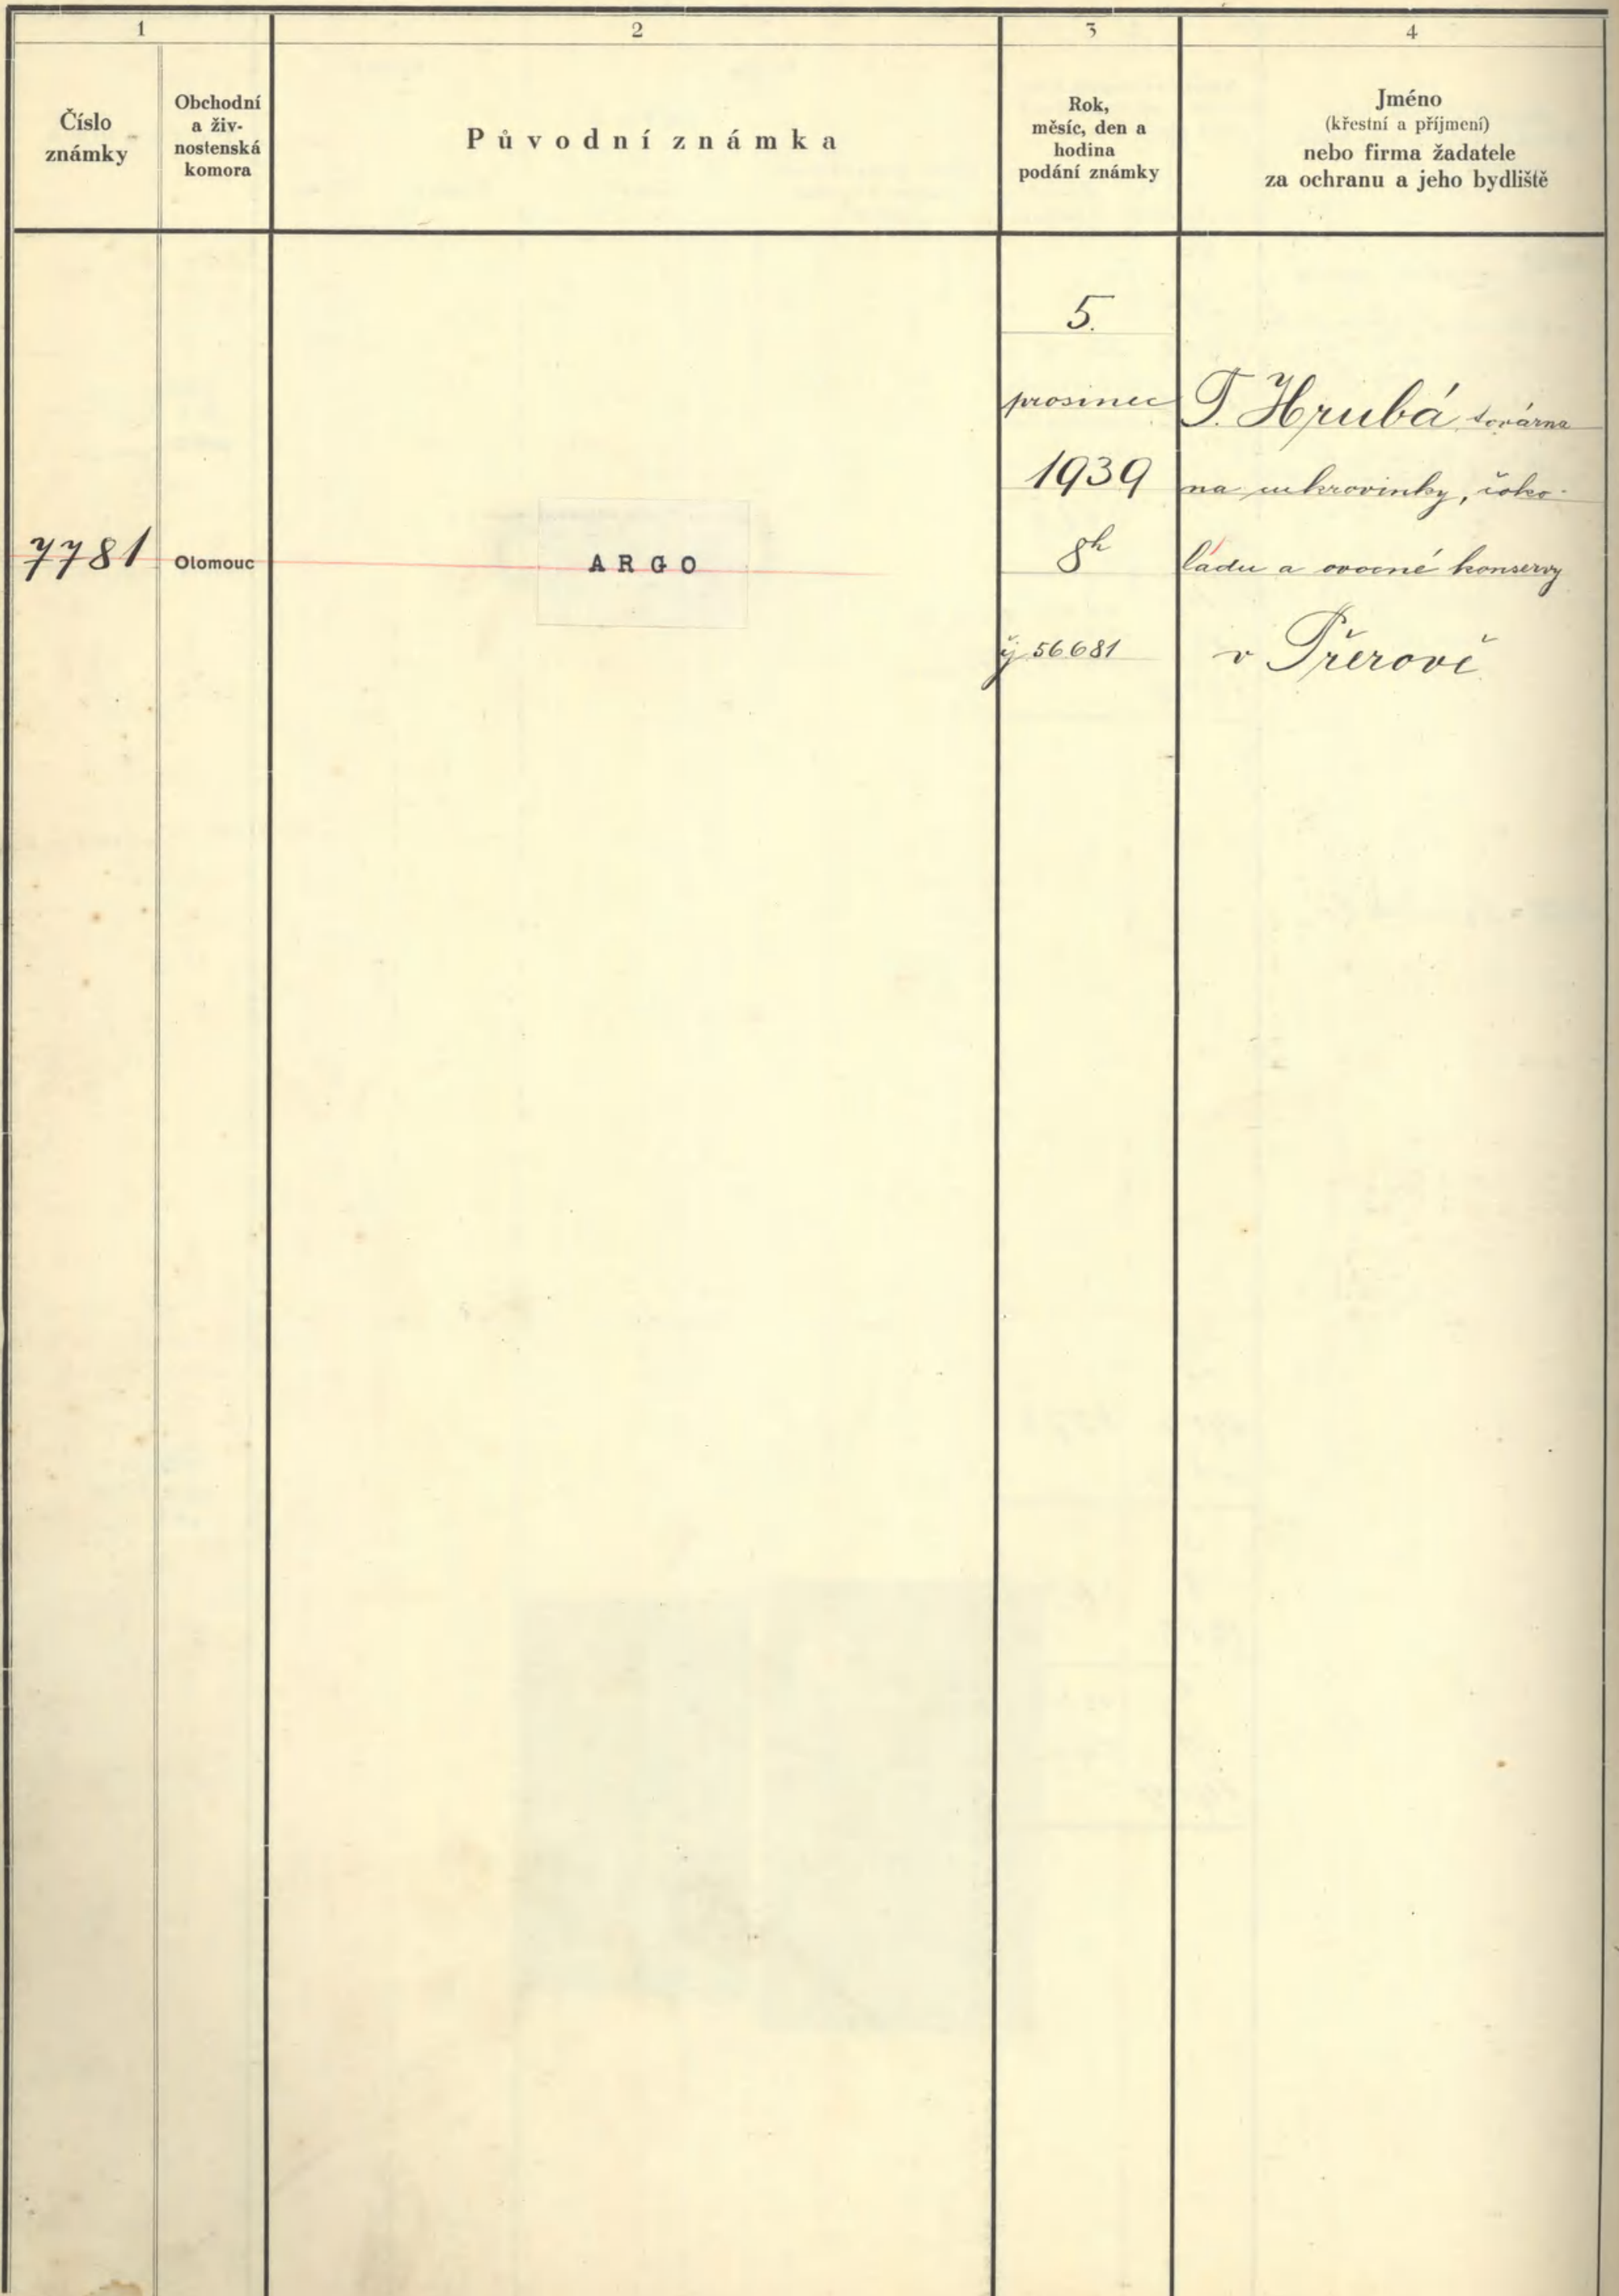 1
2
3
4
Číslo
známky
Obchodní
a živ-
nostenská
komora
Původní známka
Rok,
měsíc, den a
hodina
podání známky
Jméno
(křestní a příjmení)
nebo firma žadatele
za ochranu a jeho bydliště
7781
Olomouc
ARGO
5.
prosinec
1939
8h
čj 56681
T. Hrubá, továrna
na cukrovinky, čoko-
ládu a ovocné konservy
v Přerově